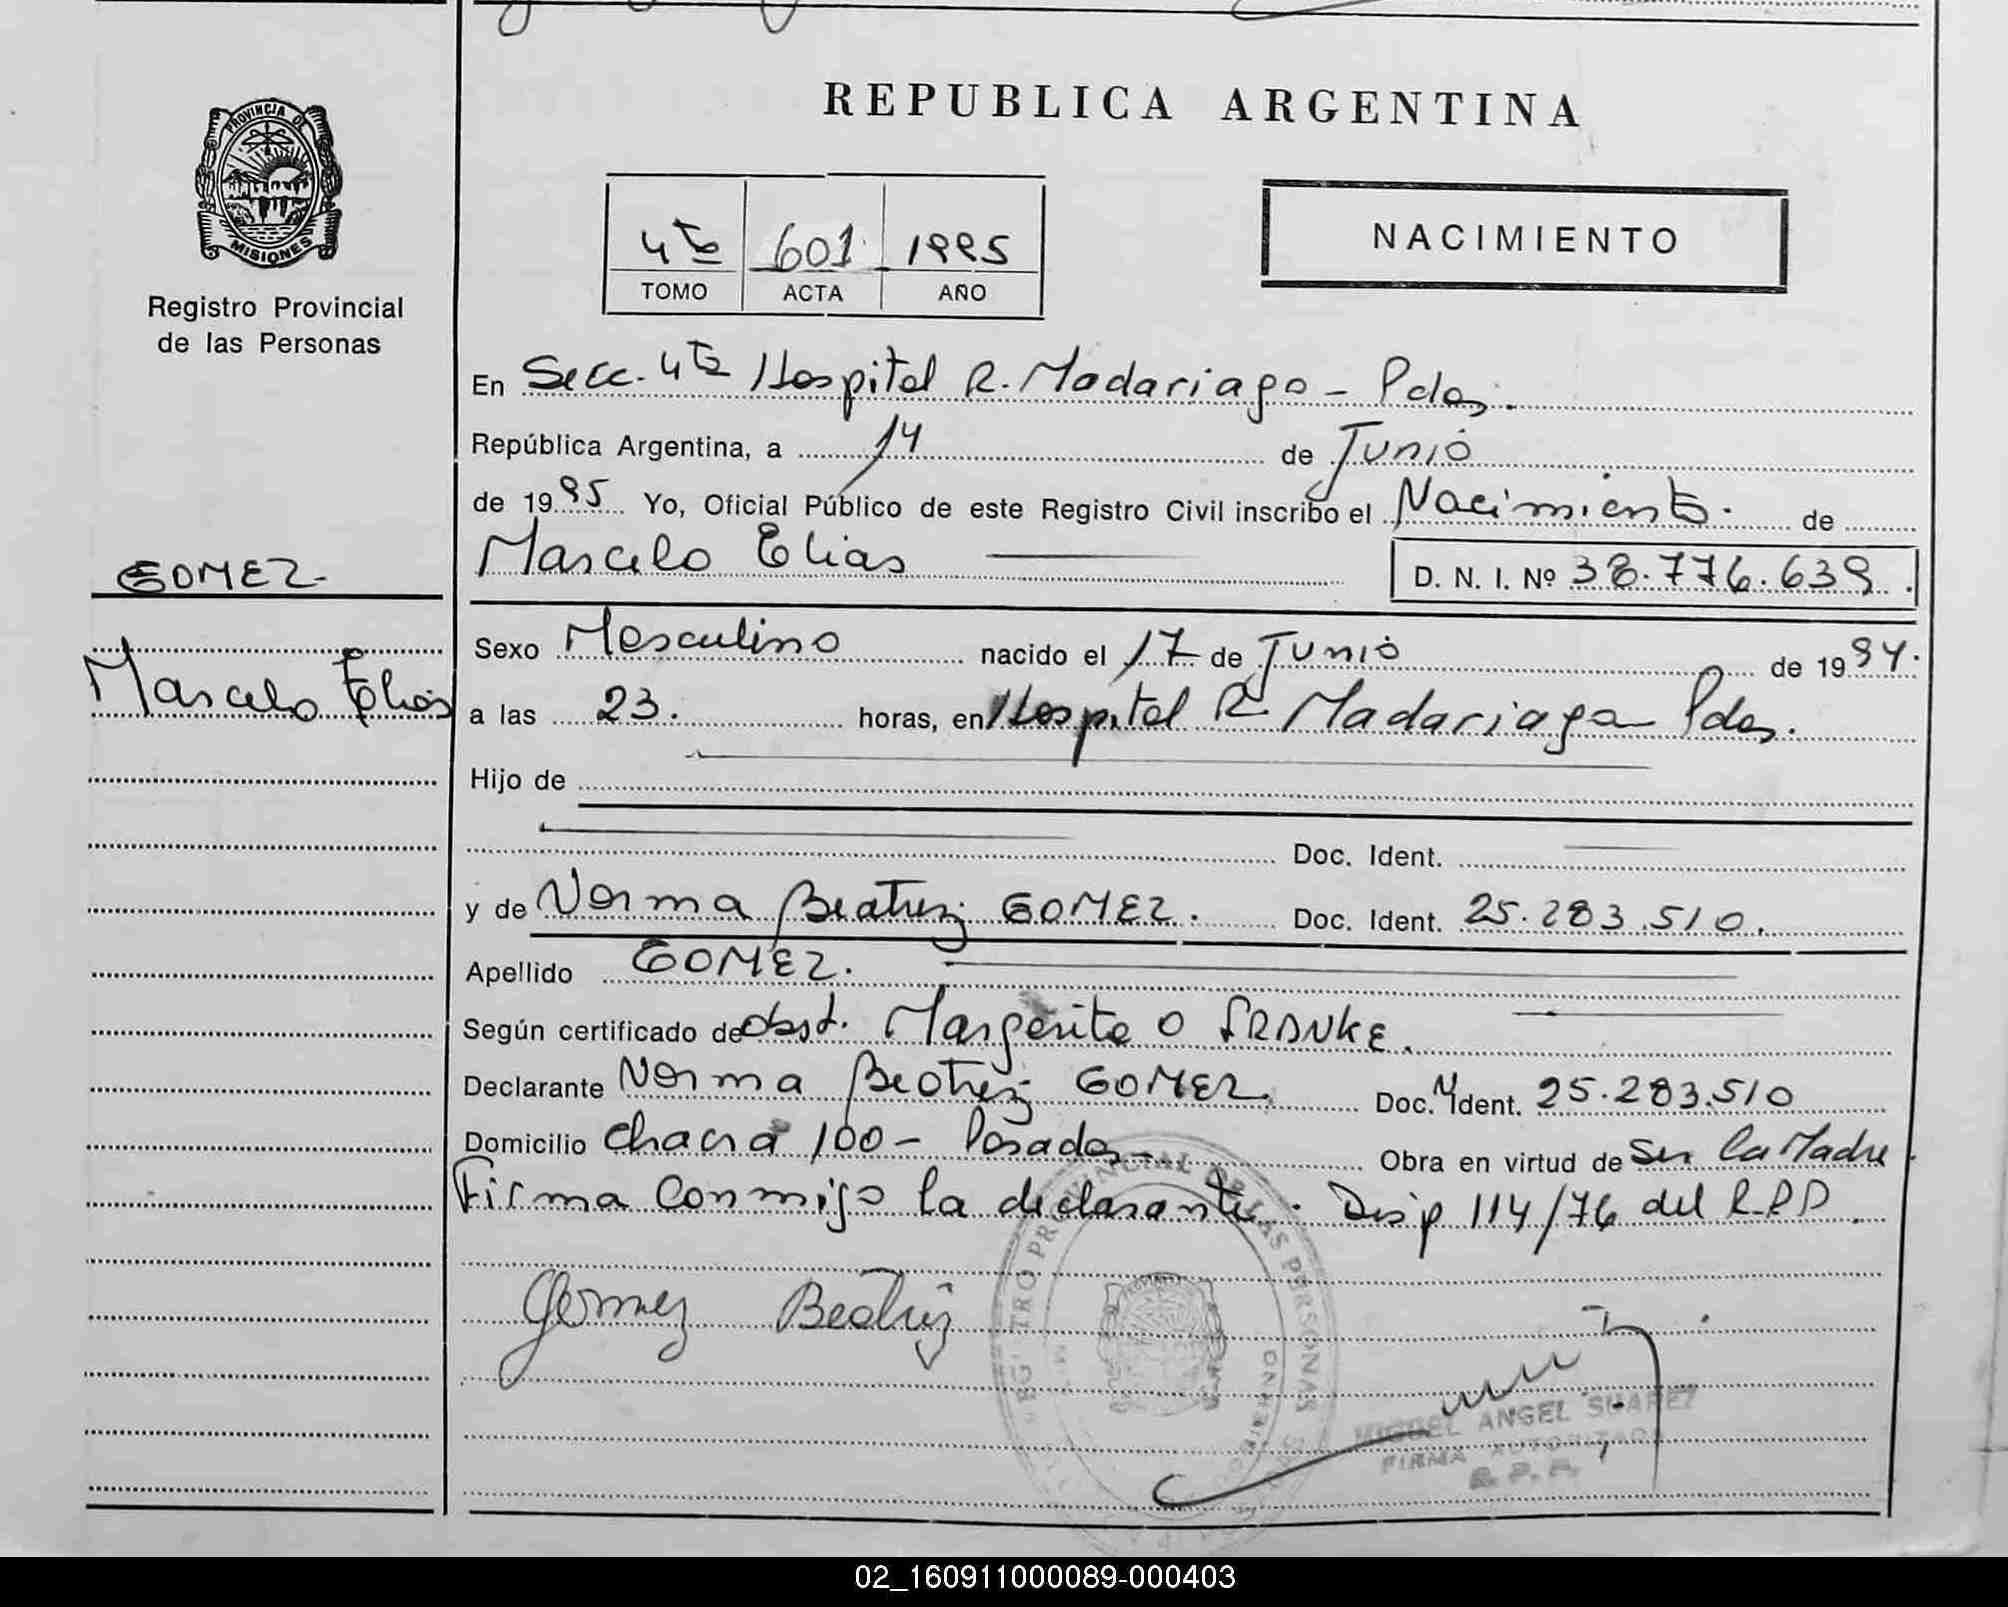 PROVINCIA DE
MISIONES
Registro Provincial
de las Personas
GOMEZ-
Marcelo Elias
REPUBLICA ARGENTINA
4ta 601 1995
TOMO ACTA AÑO
NACIMIENTO
En Secc. 4ta Hospital R. Madariaga - Pdas.
República Argentina, a 14 de Junio
de 1995 Yo, Oficial Público de este Registro Civil inscribo el Nacimiento. de
Marcelo Elias D. N. I. Nº 38.776.639.
Sexo Masculino nacido el 17 de Junio de 1994.
a las 23. horas, en Hospital R. Madariaga Pdas.
Hijo de
Doc. Ident.
y de Norma Beatriz GOMEZ. Doc. Ident. 25.283.510.
Apellido GOMEZ.
Según certificado de obst. Margarita O FRANKE.
Declarante Norma Beatriz GOMEZ. Doc. Ident. 25.283.510
Domicilio chacra 100- Posadas- Obra en virtud de Ser la Madre.
Firma conmigo la declarante. Disp 114/76 del R.P.P.
Gomez Beatriz
MIGUEL ANGEL SUAREZ
FIRMA AUTORIZADA
R. P. P.
02_160911000089-000403